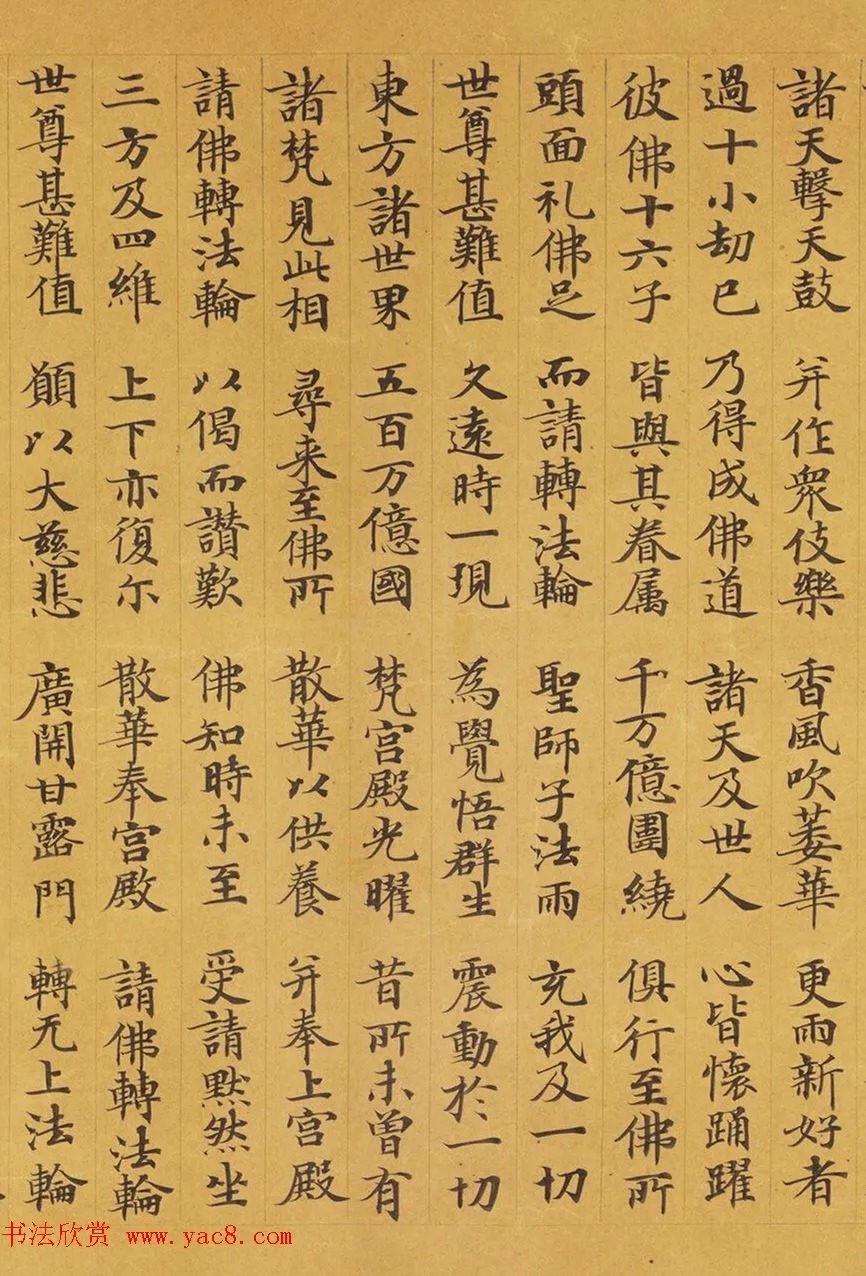 諸天擊天鼓 并作衆伎樂 香風吹萎華 更雨新好者
過十小劫已 乃得成佛道 諸天及世人 心皆懷踊躍
彼佛十六子 皆與其眷属 千万億圍繞 俱行至佛所
頭面礼佛足 而請轉法輪 聖師子法雨 充我及一切
世尊甚難值 久遠時一現 為覺悟群生 震動於一切
東方諸世界 五百万億國 梵宮殿光曜 昔所未曾有
諸梵見此相 尋来至佛所 散華以供養 并奉上宮殿
請佛轉法輪 以偈而讃歎 佛知時未至 受請默然坐
三方及四維 上下亦復尓 散華奉宮殿 請佛轉法輪
世尊甚難值 願以大慈悲 廣開甘露門 轉无上法輪
书法欣赏 www.yac8.com